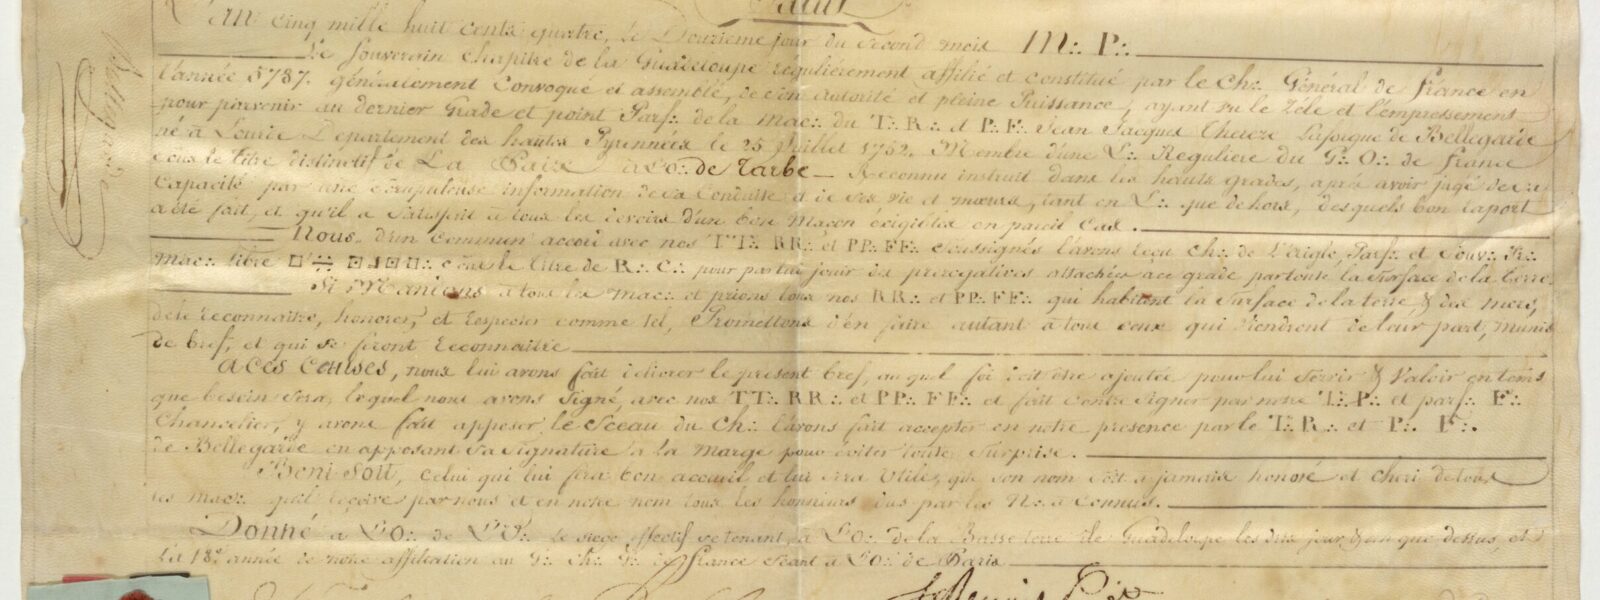 Salut
L'an cinq mille huit cents quatre, le Douzieme jour du second mois M∴ P∴
Le souverain chapitre de la Guadeloupe régulièrement affilié et constitué par le Ch∴ Général de france en
l'année 5787. généralement Convoqué et assemblé, de son autorité et pleine Puissance, ayant vu le zèle et l'empressement
pour parvenir au dernier Grade et point Parf∴ de la mac∴ du T∴ R∴ et P∴ F∴ Jean Jacques Laforgue de Bellegarde
né à Lourde Département des hautes Pyrennées le 25 Juillet 1752. Membre d'une L∴ Reguliere du G∴ O∴ de france
sous le titre distinctif de La Paix à l'O∴ de Tarbe — Reconnu instruit dans les hauts grades, après avoir jugé de sa
Capacité par une scrupuleuse information de sa Conduite et de ses vie et mœurs, tant en L∴ que dehors, desquels bon raport
a été fait, et qu'il a satisfait à tous les devoirs d'un bon Maçon exigibles en pareil cas.
Nous d'un commun accord avec nos TT∴ RR∴ et PP∴ FF∴ soussignés l'avons reçu Ch∴ de l'Aigle, Parf∴ et Souv∴
mac∴ libre sous le titre de R∴ C∴ pour par lui jouir des prérogatives attachées au grade par toute la surface de la terre
Si Mandons a tous les mac∴ et prions tous nos RR∴ et PP∴ FF∴ qui habitent la surface de la terre, & des mers,
de le reconnaitre, honorer, et respecter comme tel, Promettons d'en faire autant à tous ceux qui viendront de leur part, munis
de bref, et qui se feront reconnaitre
A ces causes, nous lui avons fait délivrer le présent bref, auquel foi doit être ajoutée pour lui servir & valoir en tems
que besoin sera, lequel nous avons signé, avec nos TT∴ RR∴ et PP∴ FF∴ et fait contre signer par notre T∴ P∴ et parf∴ F∴
Chancelier, y avons fait apposer le sceau du Ch∴ l'avons fait accepter en notre présence par le T∴ R∴ et P∴ F∴
de Bellegarde en apposant sa signature à la marge pour éviter toute surprise.
Beni soit, celui qui lui fera bon accueil et lui sera utile, que son nom soit a jamais honoré et cheri de tous
les mac∴ qu'il reçoive par nous et en notre nom tous les honneurs dus par les N∴ a Connus.
Donné a L'O∴ de L'U∴ le siège effectif se tenant, à L'O∴ de la Basse terre ile Guadeloupe les dits jour & an que dessus, et
la 18e année de notre affiliation au G∴ Ch∴ G∴ de france séant à l'O∴ de Paris